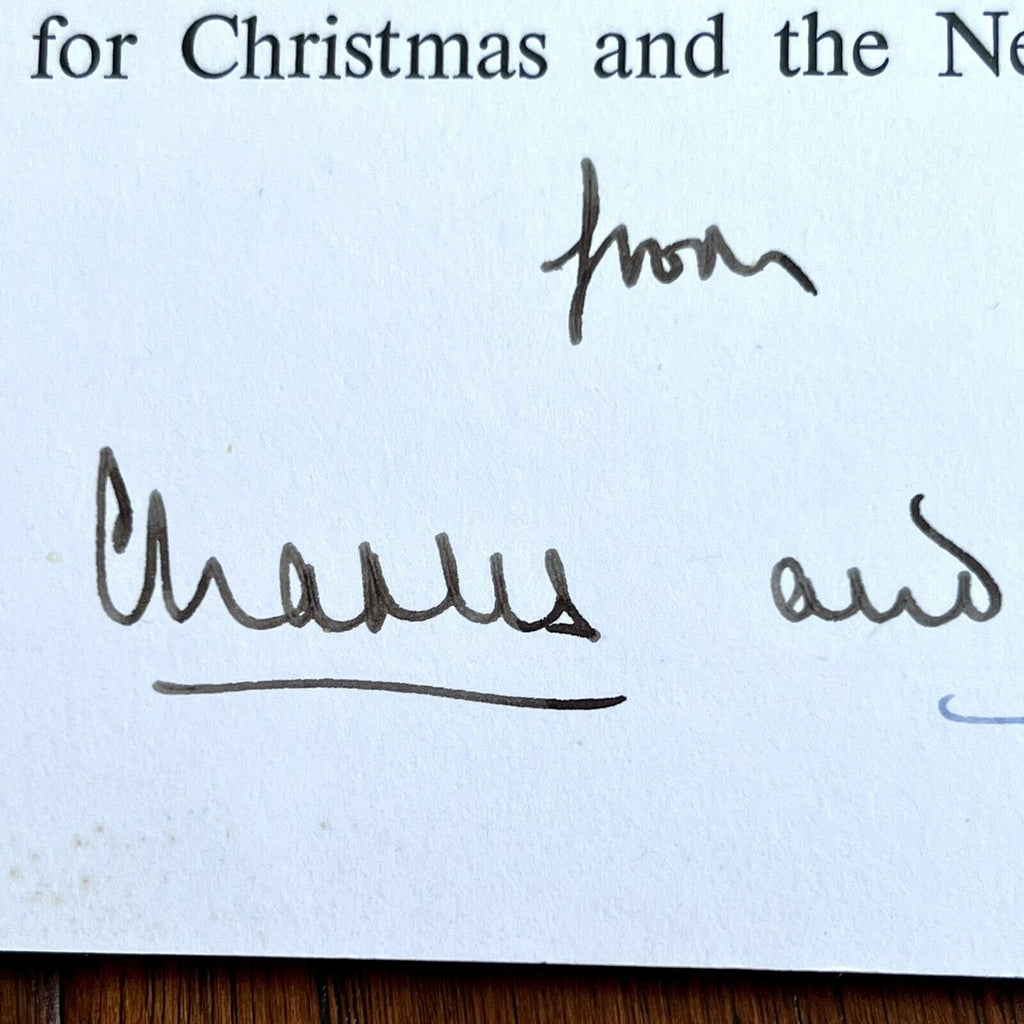 for Christmas and the Ne
from
Charles and